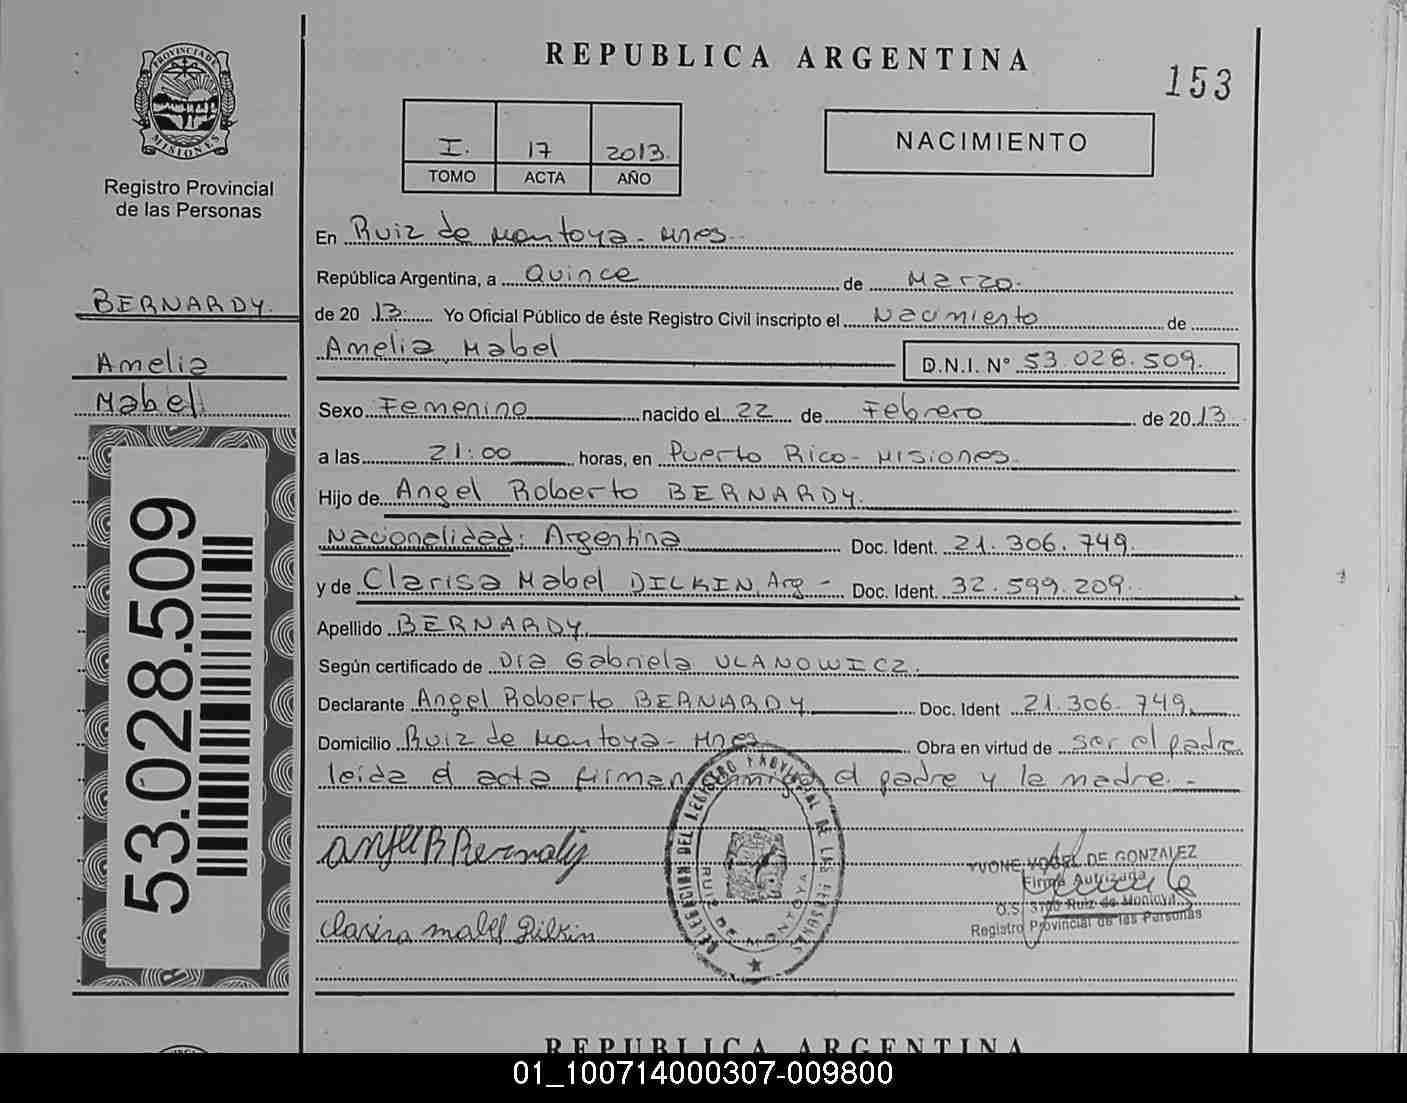 REPUBLICA ARGENTINA
153
PROVINCIA DE MISIONES
Registro Provincial
de las Personas
I. 17 2013.
TOMO ACTA AÑO
NACIMIENTO
En Ruiz de Montoya - Mnes.
República Argentina, a Quince de Marzo.
de 20 13. Yo Oficial Público de éste Registro Civil inscripto el Nacimiento de
Amelia Mabel D.N.I. N° 53.028.509.
BERNARDY.
Amelia
Mabel
53.028.509
Sexo Femenino nacido el 22 de Febrero de 20 13
a las 21:00 horas, en Puerto Rico - Misiones.
Hijo de Angel Roberto BERNARDY.
Nacionalidad: Argentina Doc. Ident. 21.306.749.
y de Clarisa Mabel DILKIN, Arg - Doc. Ident. 32.599.209.
Apellido BERNARDY.
Según certificado de Dra Gabriela ULANOWICZ.
Declarante Angel Roberto BERNARDY Doc. Ident 21.306.749.
Domicilio Ruiz de Montoya - Mnes Obra en virtud de ser el padre
leida el acta firman el padre y la madre. -
Angel R Bernardy
Clarisa Mabel Dilkin
DELEGACION DEL REGISTRO PROVINCIAL DE LAS PERSONAS
RUIZ DE MONTOYA
YVONE VOGEL DE GONZALEZ
Firma Autrizada
O.S. 3700 Ruiz de Montoya
Registro Provincial de las Personas
REPUBLICA ARGENTINA
01_100714000307-009800